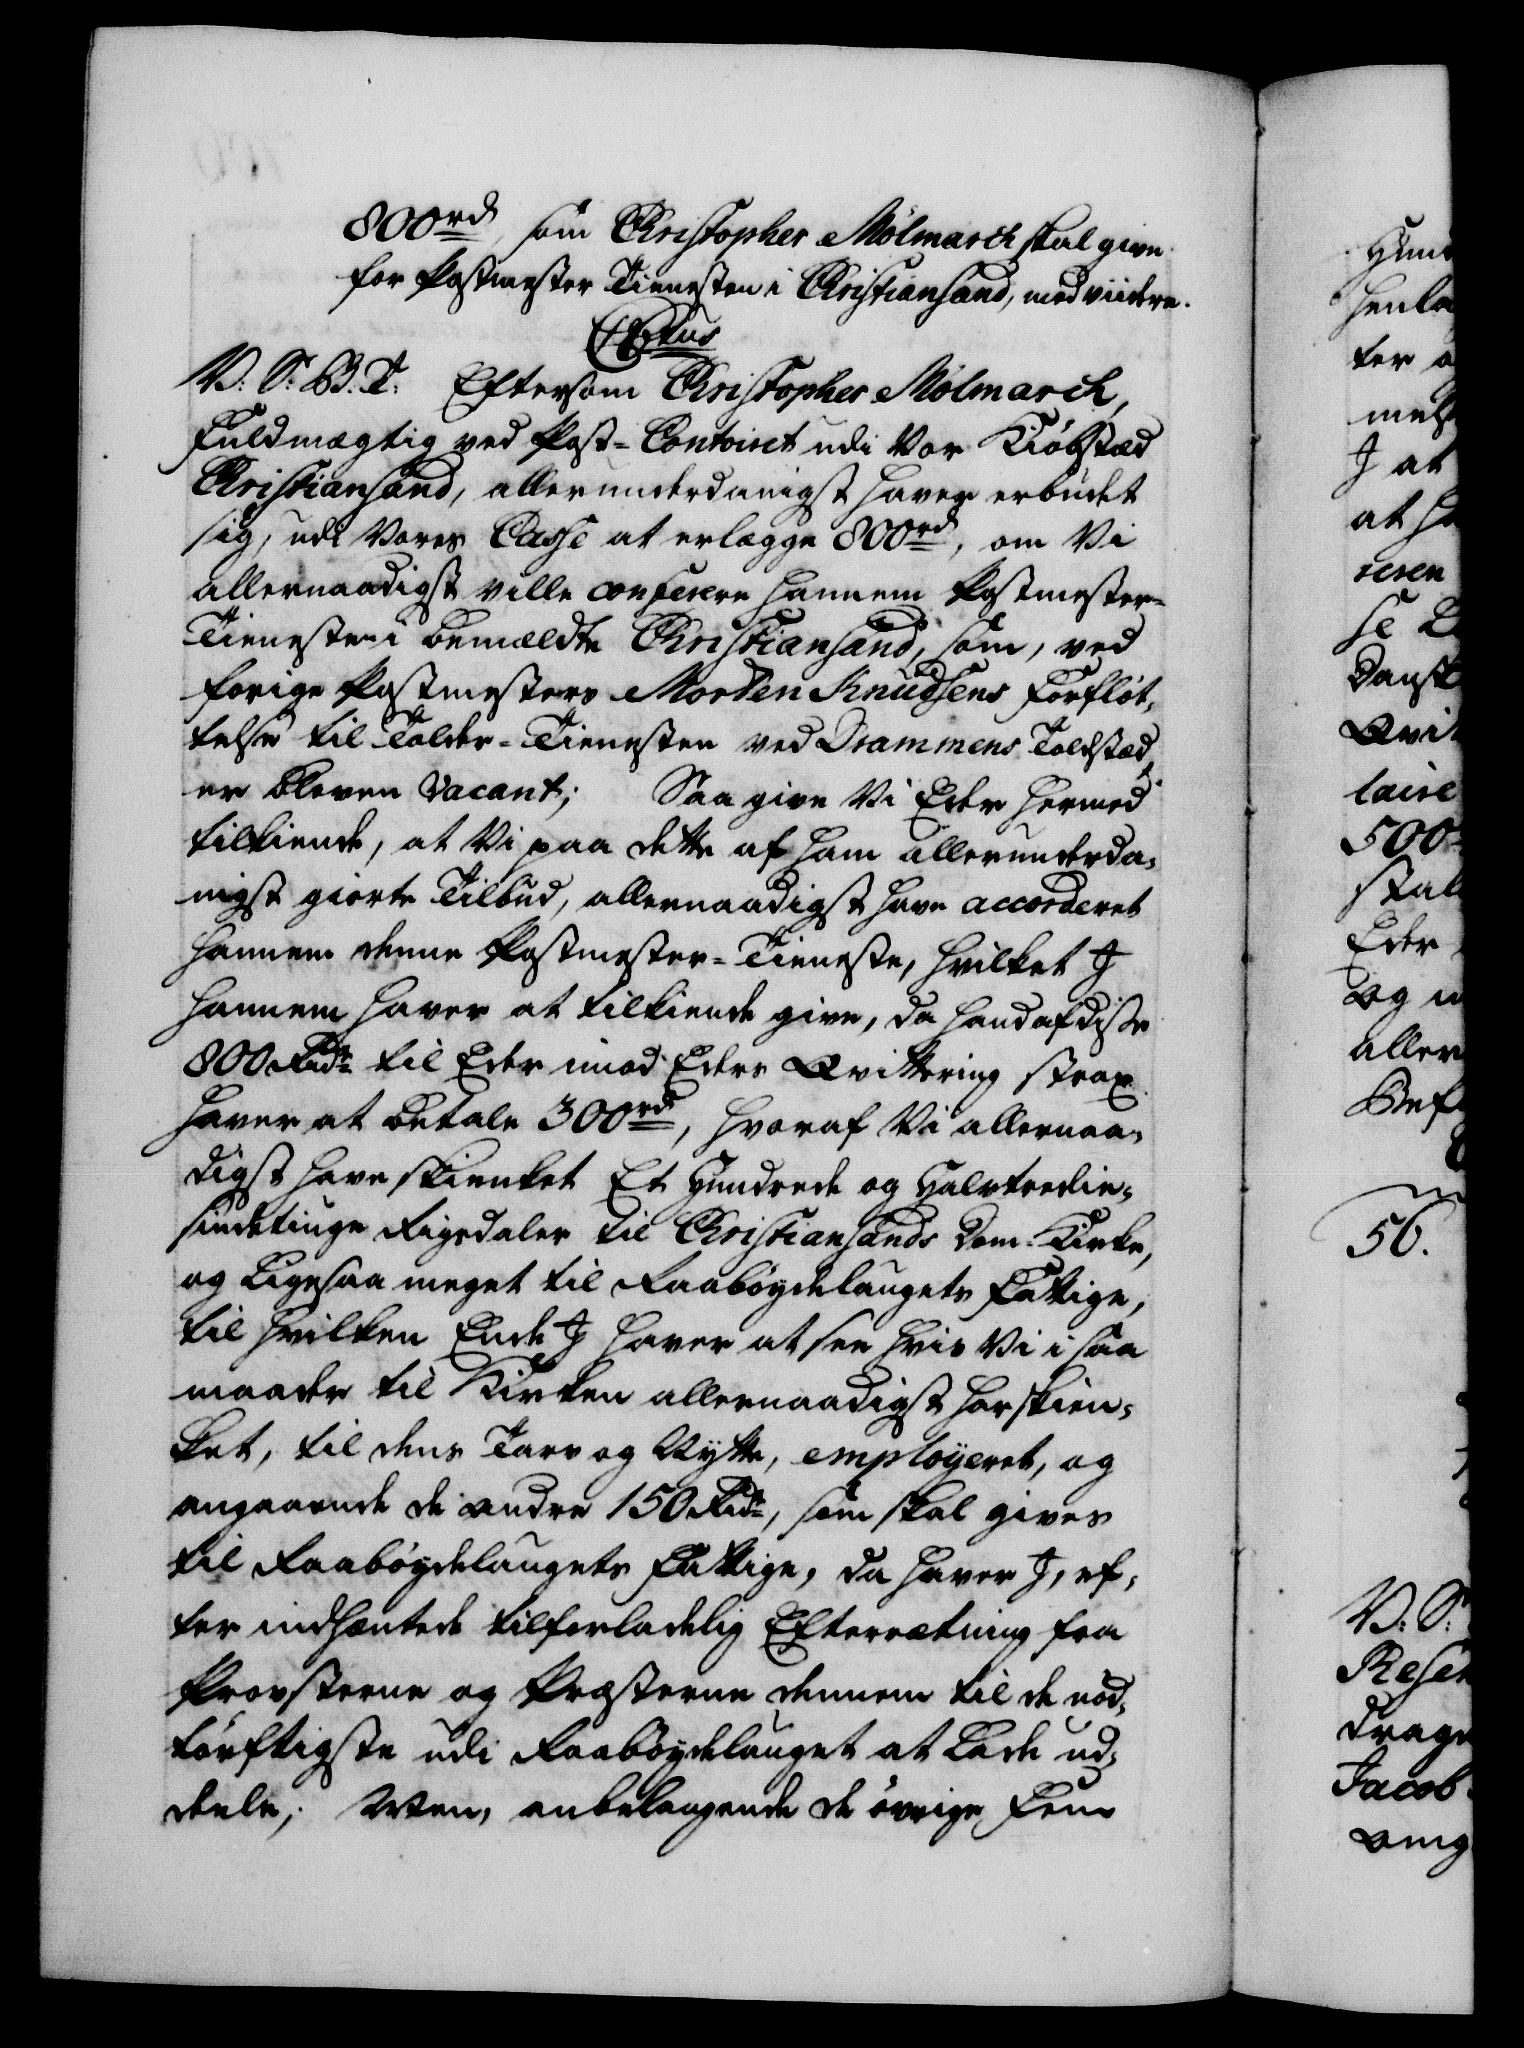 800rd, som Christopher Mølmarch skal give
for Postmester Tienesten i Christiansand, med viidere.
C6tus
V: S: B: T: Eftersom Christopher Mølmarch,
Fuldmægtig ved Post-Contoiret udi Vor Kiøbstæd
Christiansand, allerunderdanigst haver erbudet
sig, udi Vores Casse at erlægge 800rd, om Vi
allernaadigst ville conferere hannem Postmester-
Tienesten i bemældte Christiansand, som, ved
forige Postmesters Morten Knudsens Forfløt-
telse til Tolder-Tienesten ved Drammens Toldstæd,
er bleven vacant; Saa give Vi Eder hermed
tilkiende, at Vi paa dette af ham allerunderda-
nigst giorte Tilbud, allernaadigst have accorderet
hannem denne Postmester-Tieneste, hvilket I
hannem haver at tilkiende give, da hand af disse
800 Rdr til Eder imod Eders Qvittering strax
haver at betale 300rd, hvoraf Vi allernaa-
digst have skienket Et Hundrede og Halvtredie-
sindstiuge Rigsdaler til Christiansands Dom-Kirke,
og Ligesaa meget til Raabøydelaugets Fattige,
til hvilken Ende I haver at see hvis Vi i saa
maader til Kirken allernaadigst har skien-
ket, til dens Tarv og Nytte, employeret, og
angaaende de andre 150 Rdr, som skal gives
til Raabøydelaugets Fattige, da haver I, ef-
ter indhæntede tilforladelig Efterretning fra
Provsterne og Præsterne dennem til de nød-
tørftigste udi Raabøydelauget at Lade ud-
deele; Men, anbelangende de øvrige Fem
Hund
henla
ter a
mels
I at
at ha
reren
se
Dansk
Qvit
laire
500
skal
Eder
og
aller
Bef
56.
V: S:
Resen
drage
Jacob
ang